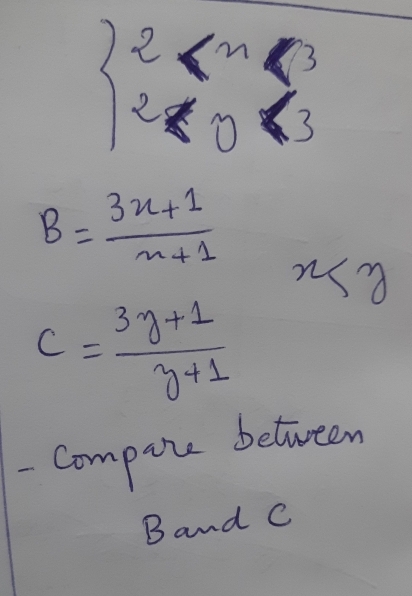 2 < x < 3
2 < y < 3
B = 3x+1 / x+1
x < y
C = 3y+1 / y+1
- Compare between
B and C